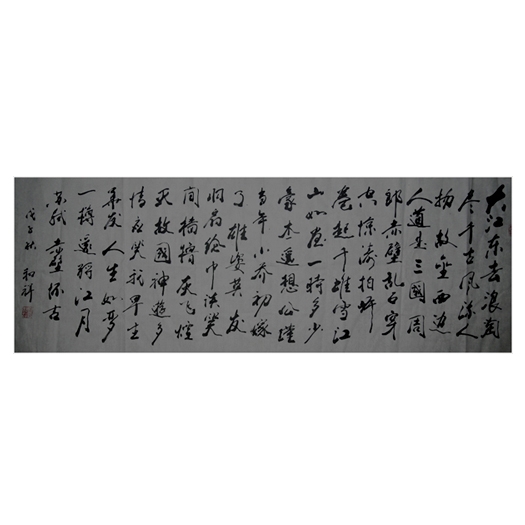 大江东去浪淘
尽千古风流人
物故垒西边
人道是三國周
郎赤壁乱石穿
空惊涛拍岸
卷起千堆雪江
山如画一時多少
豪杰遥想公瑾
当年小乔初嫁
了雄姿英发
羽扇纶巾谈笑
间樯橹灰飞烟
灭故國神遊多
情应笑我早生
华发人生如梦
一樽還酹江月
苏轼赤壁怀古
戊子秋和祥